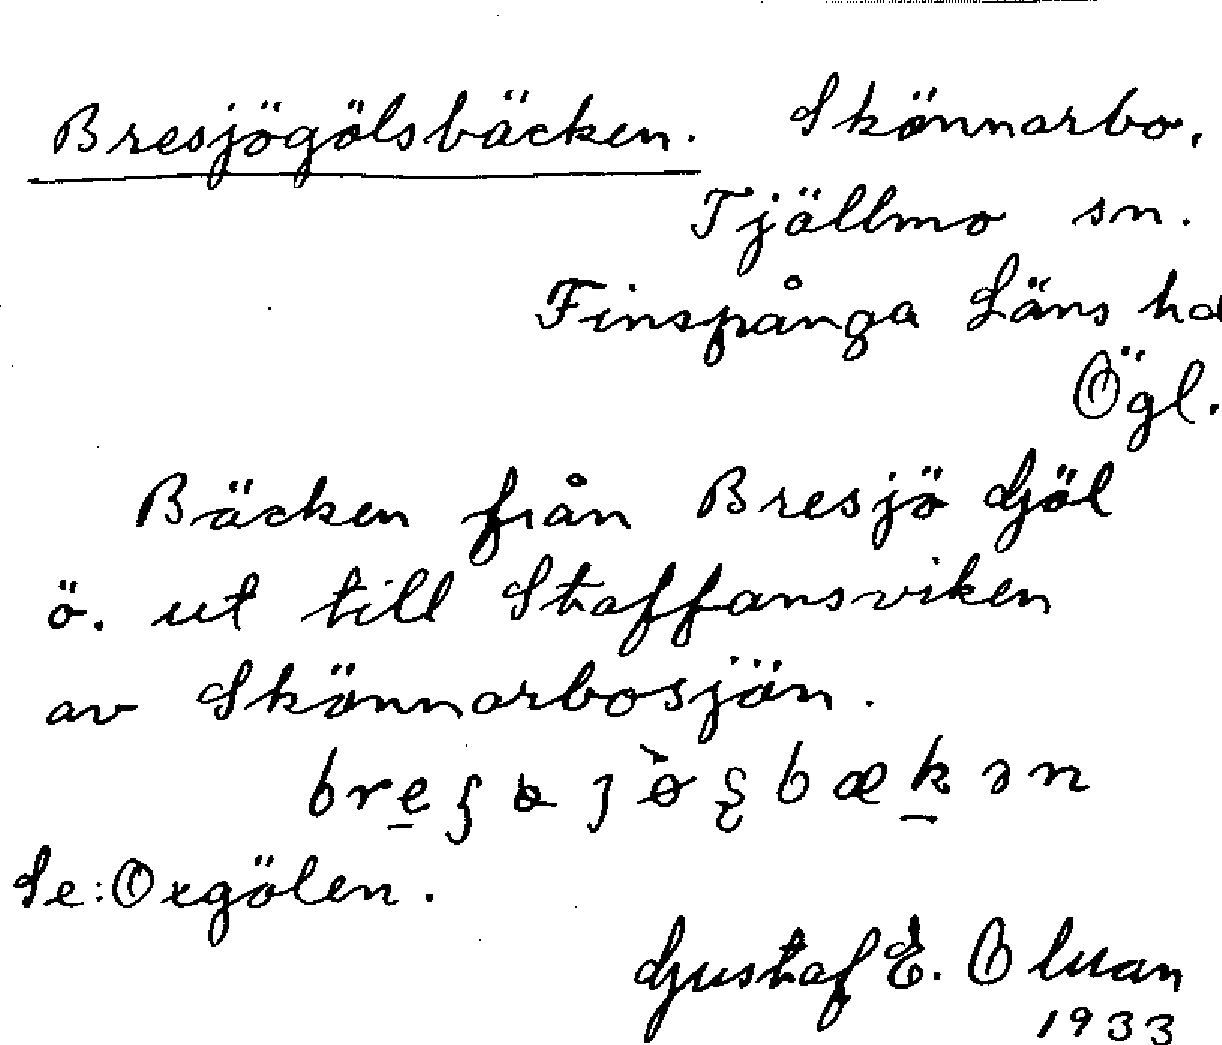 Bresjögölsbäcken. Skönnarbo,
Tjällmo sn.
Finspånga Läns hd
Ögl.
Bäcken från Bresjö Gjöl
ö. ut till Staffansviken
av Skönnarbosjön.
Se: Oxgölen.
Gustaf E.
1933